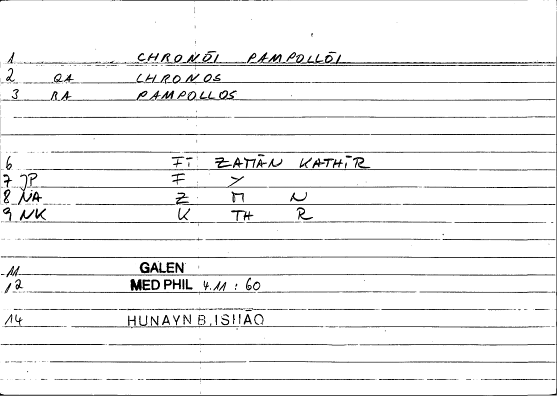 1 CHRONŌI PAMPOLLŌI
2 QA CHRONOS
3 RA PAMPOLLOS
6 FĪ ZAMĀN KATHĪR
7 JP F Y
8 NA Z M N
9 NK K TH R
11 GALEN
12 MED PHIL 4.11 : 60
14 HUNAYN B.ISHAQ